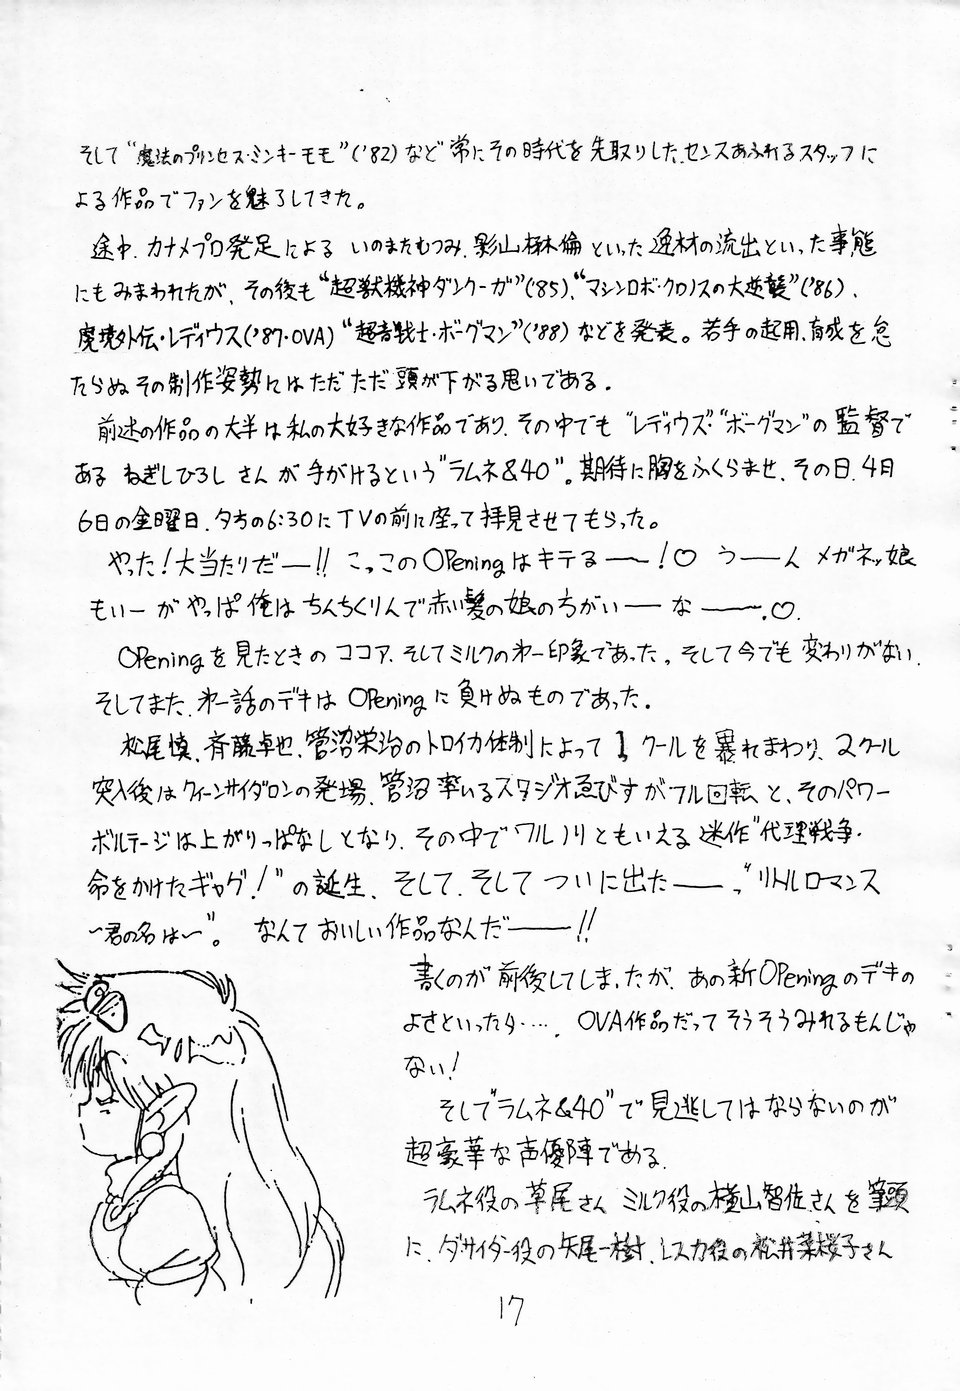 そして“魔法のプリンセス・ミンキーモモ”('82)など常にその時代を先取りした、センスあふれるスタッフに
よる作品でファンを魅了してきた。
途中、カナメプロ発足による いのまたむつみ、影山楙倫といった逸材の流出といった事態
にもみまわれたが、その後も“超獣機神ダンクーガ”('85)、“マシンロボ・クロノスの大逆襲”('86)、
魔境外伝・レディウス('87・OVA)“超音戦士・ボーグマン”('88)などを発表。若手の起用、育成を怠
たらぬその制作姿勢にはただただ頭が下がる思いである。
前述の作品の大半は私の大好きな作品であり、その中でも“レディウス”“ボーグマン”の監督で
ある ねぎしひろし さんが手がけるという“ラムネ&40”。期待に胸をふくらませ、その日、4月
6日の金曜日、夕方の6:30にTVの前に座って拝見させてもらった。
やった!大当たりだー!! こっこのOPeningはキテるー!♡ うーん メガネッ娘
もいーが やっぱ俺はちんちくりんで赤い髪の娘の方がいーなー.♡.
OPeningを見たときのココア、そしてミルクの㐧一印象であった。そして今でも変わりがない。
そしてまた、㐧一話のデキはOPeningに負けぬものであった。
松尾慎、斉藤卓也、菅沼栄治のトロイカ体制によって1クールを暴れまわり、2クール
突入後はクィーンサイダロンの登場、菅沼率いるスタジオゑびすがフル回転と、そのパワー
ボルテージは上がりっぱなしとなり、その中でワルノリともいえる迷作“代理戦争・
命をかけたギャグ!”の誕生、そして、そしてついに出たー“リトルロマンス
〜君の名は〜”。 なんておいしい作品なんだー!!
書くのが前後してしまったが、あの新OPeningのデキの
よさといったら‥‥、OVA作品だってそうそうみれるもんじゃ
ない!
そして“ラムネ&40”で見逃してはならないのが
超豪華な声優陣である。
ラムネ役の草尾さん ミルク役の横山智佐さんを筆頭
に、ダ・サイダー役の矢尾一樹、レスカ役の松井菜桜子さん
17